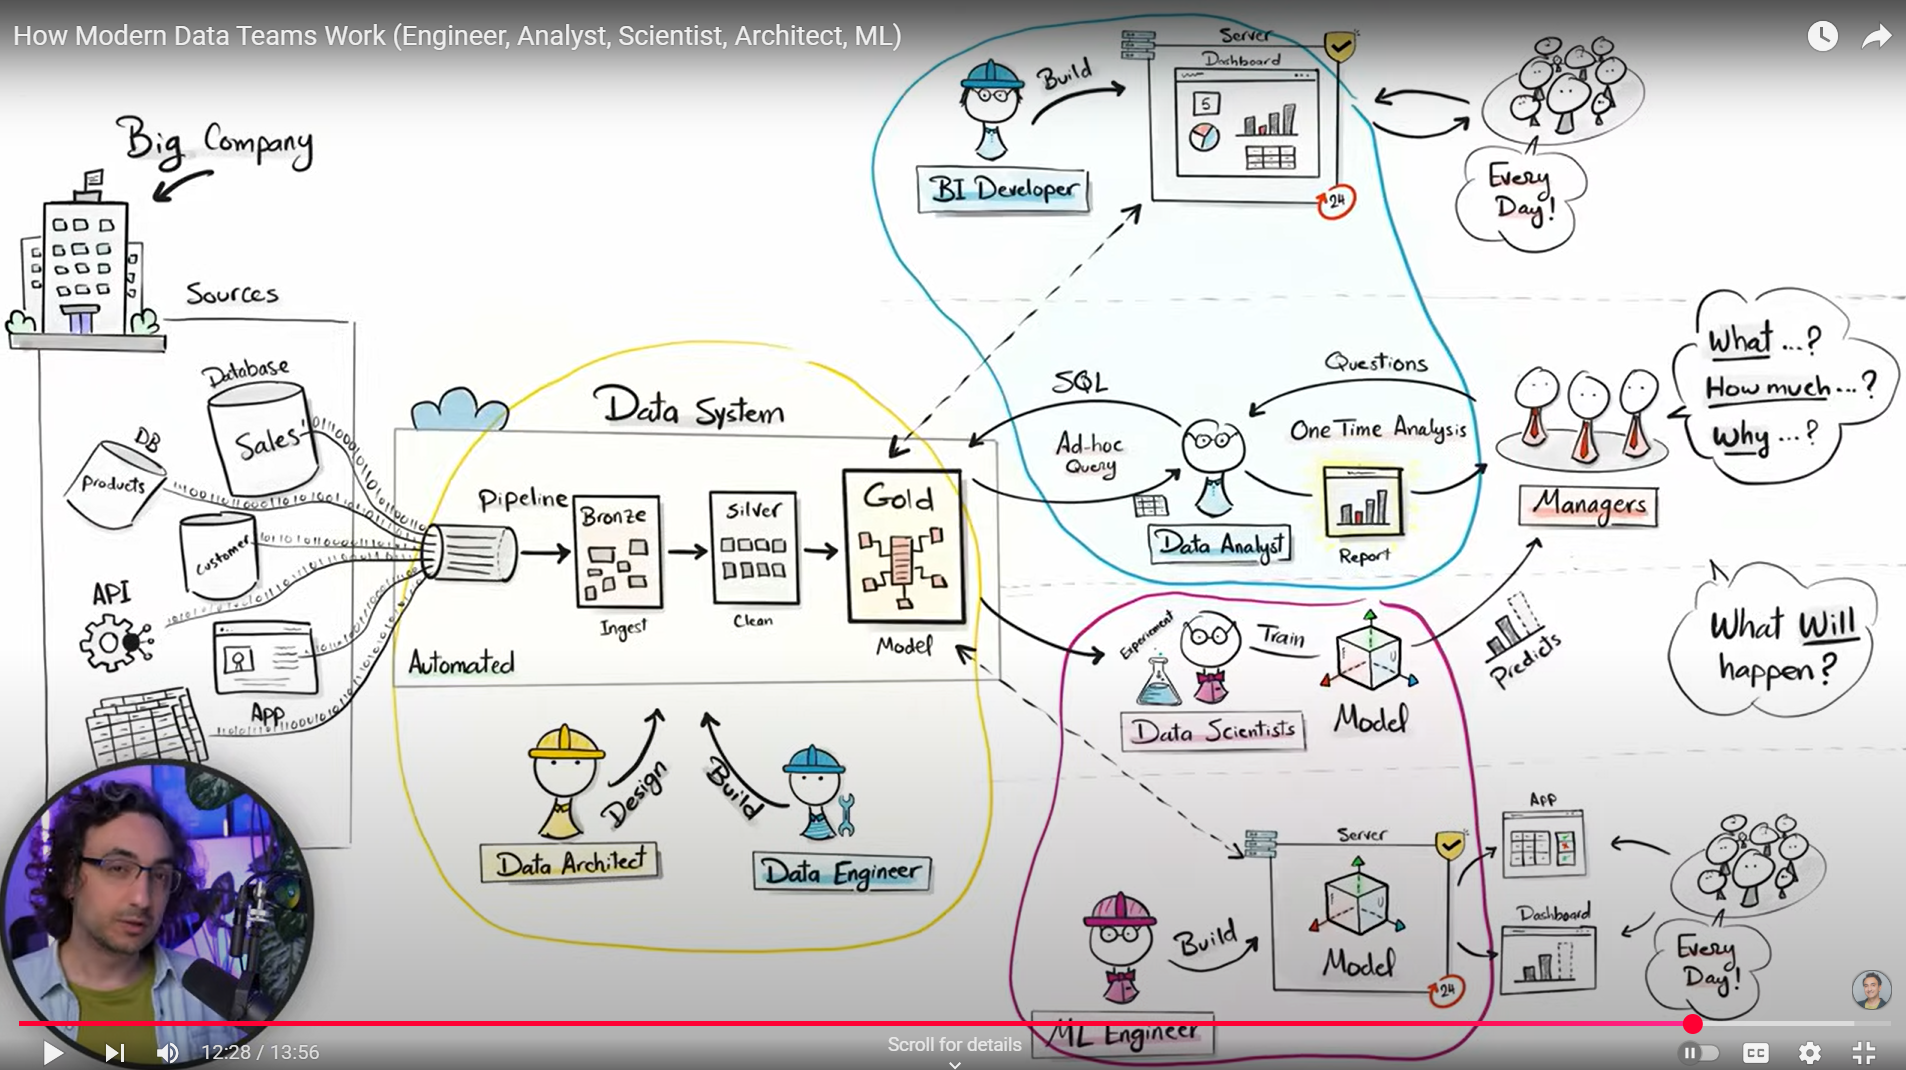 How Modern Data Teams Work (Engineer, Analyst, Scientist, Architect, ML)
Big Company
Sources
Database
Sales
DB
Products
Customer
API
App
Data System
Pipeline
Bronze
Ingest
Silver
Clean
Gold
Model
Automated
Design
Build
Data Architect
Data Engineer
Build
BI Developer
Server
Dashboard
5
24
Every
Day!
SQL
Ad-hoc
Query
Data Analyst
Questions
One Time Analysis
Report
Managers
What ...?
How much...?
Why ...?
Experiement
Train
Data Scientists
Model
Predicts
What Will
happen?
Build
ML Engineer
Server
Model
24
App
Dashboard
Every
Day!
12:28 / 13:56
Scroll for details
CC